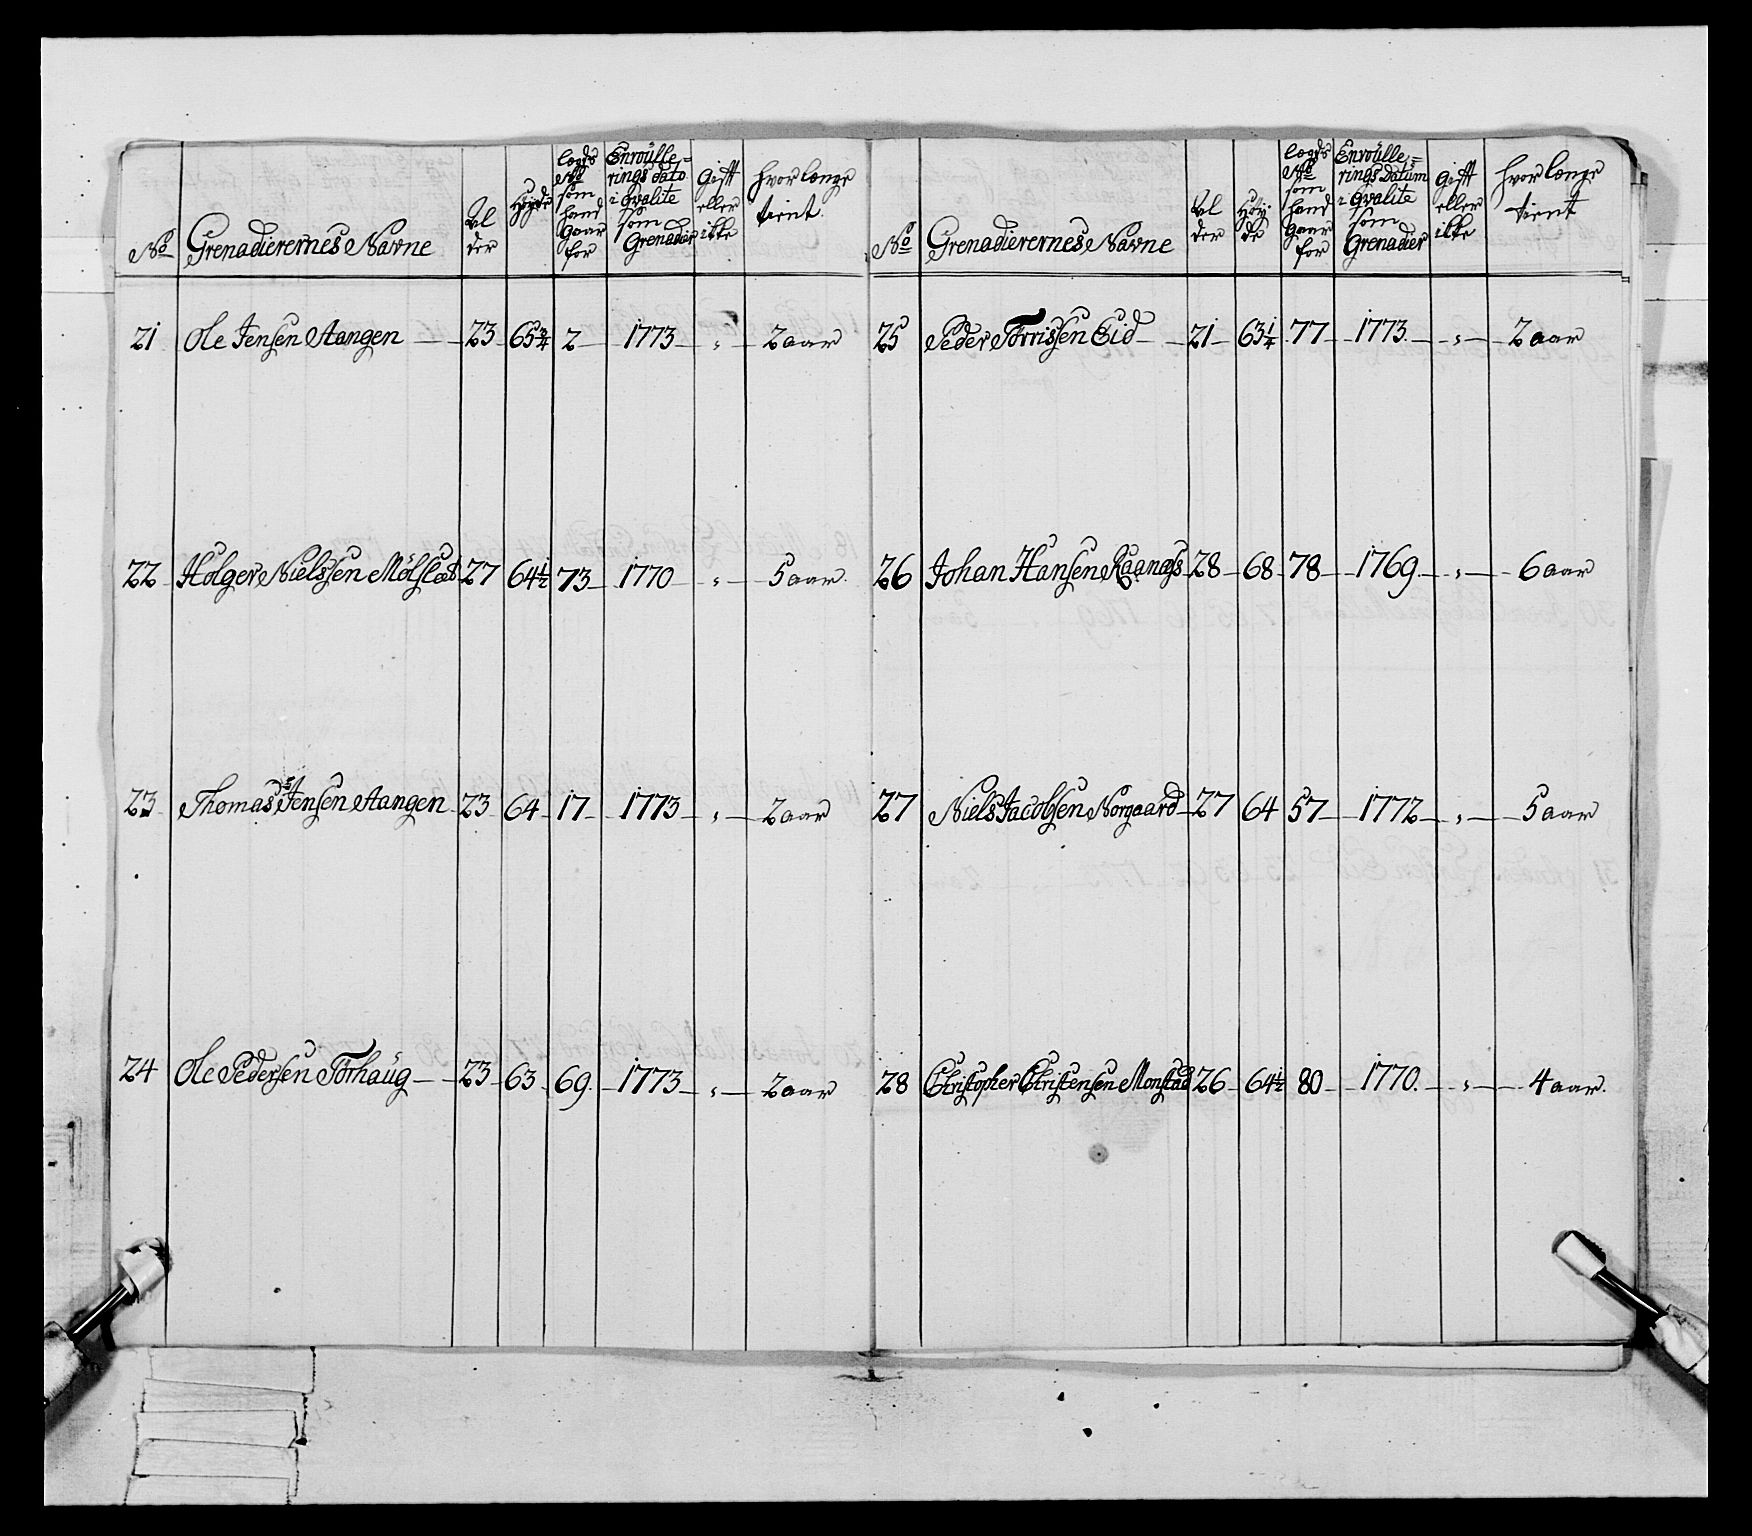 No Grenadierernes Navne Al der Høyde Lægds No som hand gaar for Enroulle= rings dato i Qvalite som Grenadier Gift eller ikke hvor længe tient.
21 Ole Jensen Aangen 23 65¾ 2 1773 " 2 aar
22 Holger Nielssen Mölstad 27 64½ 73 1770 " 5 aar.
23 Thomas Jensen Aangen 23 64 17 1773 " 2 aar
24 Ole Pedersen Torhaug 23 63 69. 1773 " 2 aar
No Grenadierernes Navne Al der Høy: de Lægds No som hand gaar for Enroulle= rings datum i Qvalite som Grenadier Gift eller ikke hvor længe tient
25 Peder Torrissen Eid 21 63¼ 77 1773. " 2 aar
26 Johan Hansen 28 68 78 1769. " 6 aar
27 Niels Jacobsen Norgaard 27 64 57 1772 " 5 aar
28 Christopher Christensen Monstad 26 64½ 80 1770. " 4 aar.